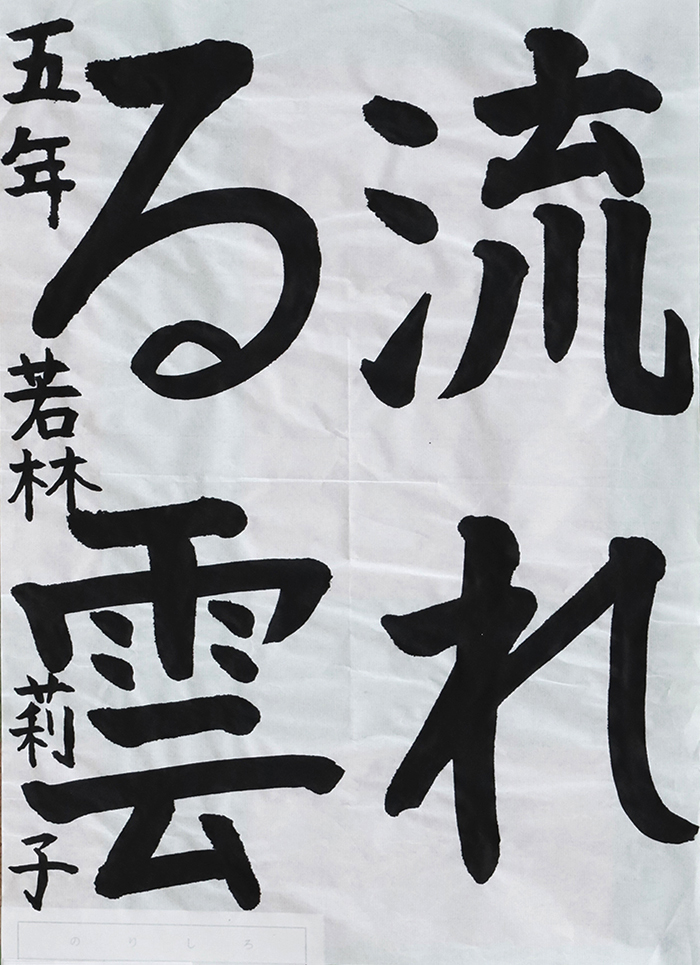 流れ
る雲
五年 若林 莉子
のりしろ